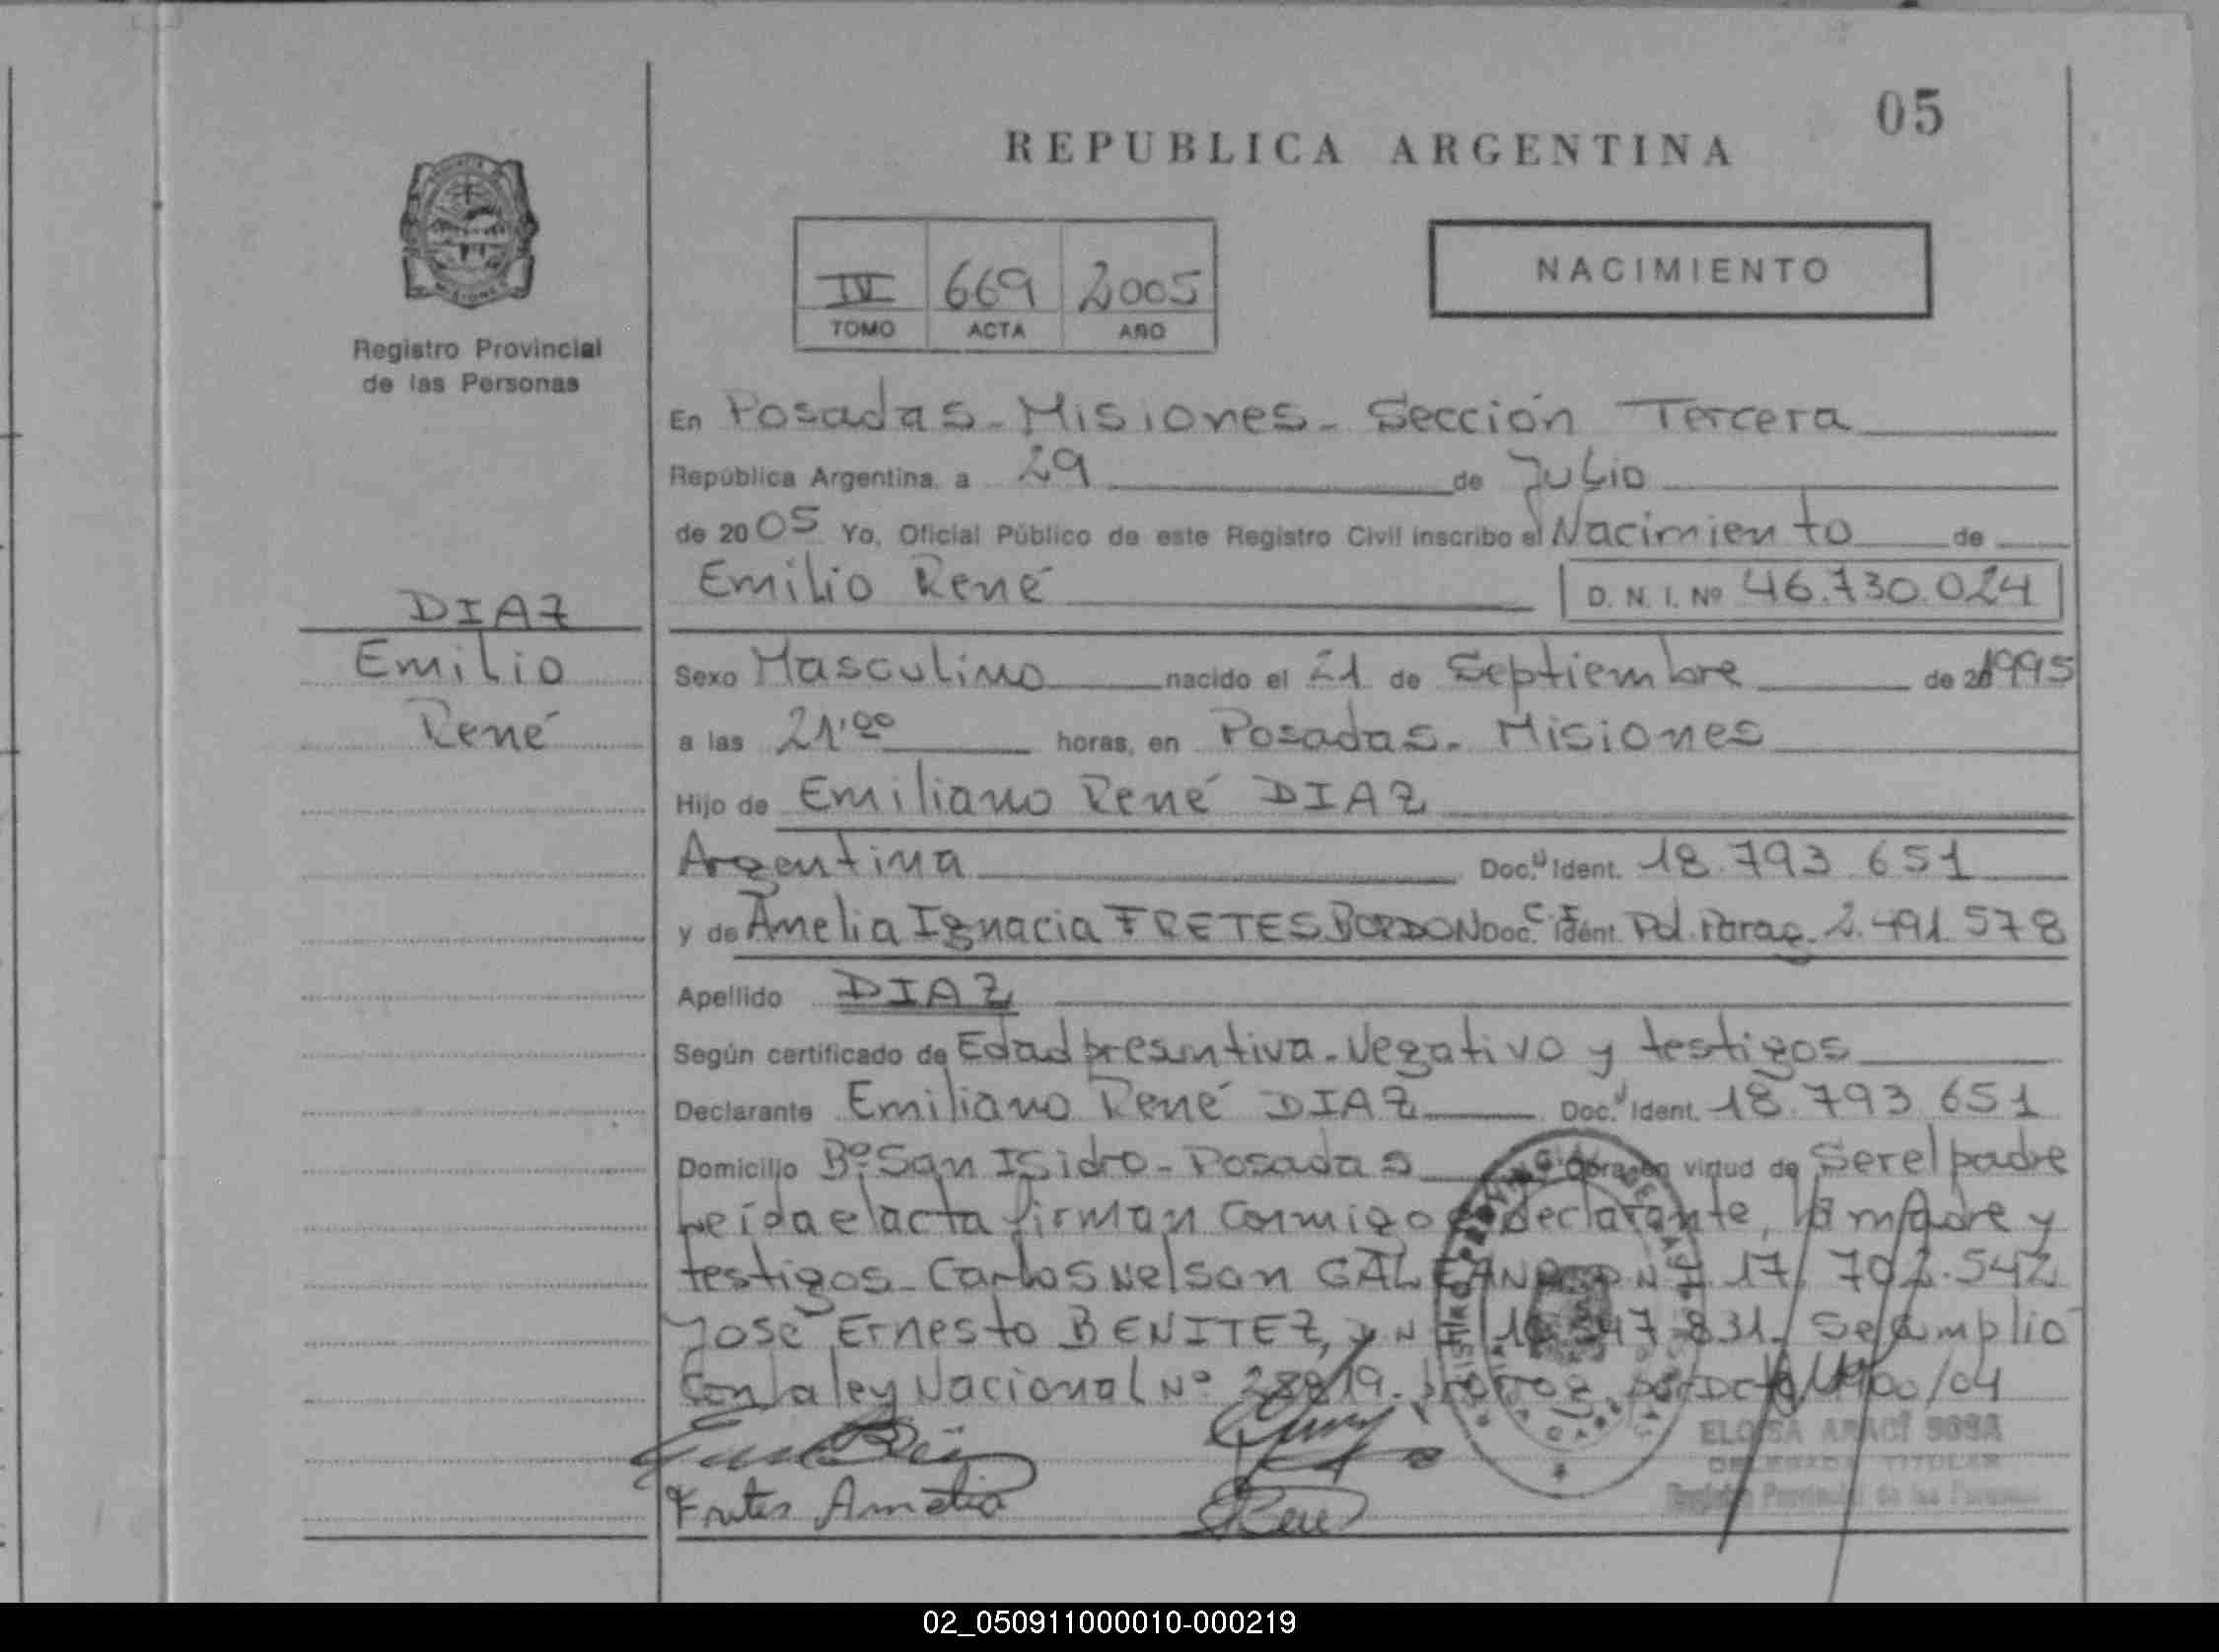 05
REPUBLICA ARGENTINA
IV 669 2005
TOMO ACTA AÑO
NACIMIENTO
Registro Provincial
de las Personas
En Posadas - Misiones - Sección Tercera
República Argentina, a 29 de Julio
de 2005 Yo, Oficial Público de este Registro Civil inscribo el Nacimiento de
Emilio René D. N. I. Nº 46.730.024
DIAZ
Emilio
René
Sexo Masculino nacido el 21 de Septiembre de 1995
a las 21'00 horas, en Posadas - Misiones
Hijo de Emiliano René DIAZ
Argentina Doc. Ident. 18.793.651
y de Amelia Ignacia FRETES BORDON Doc. C.I. Ident. Pol. Parag. 2.491.578
Apellido DIAZ
Según certificado de Edad presuntiva - Negativo y testigos
Declarante Emiliano René DIAZ Doc. Ident. 18.793.651
Domicilio Bº San Isidro - Posadas Obra en virtud de Ser el padre
Leída el acta firman conmigo el declarante, la madre y
testigos - Carlos Nelson GALEANO DNI 17.702.542
José Ernesto BENITEZ, DNI 831. Se amplio
Con la ley Nacional Nº
Fretes Amelia
René
ELOISA ARACI SOSA
DELEGADA TITULAR
Registro Provincial de las Personas
02_050911000010-000219